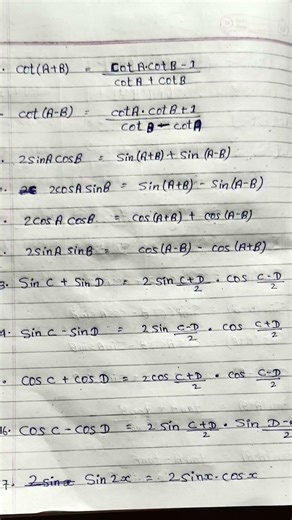 . cot(A+B) = cotA.cotB-1 / cotA+cotB
- cot(A-B) = cotA.cotB+1 / cotB-cotA
. 2sinAcosB = Sin(A+B)+Sin(A-B)
. 2cosAsinB = Sin(A+B) - Sin(A-B)
. 2cosA cosB = cos(A+B) + cos(A-B)
. 2sinA sinB = cos(A-B) - cos(A+B)
3. Sin C + Sin D = 2 Sin C+D/2 . cos C-D/2
4. Sin C - SinD = 2Sin C-D/2 . cos C+D/2
. cos C + cos D = 2cos C+D/2 . cos C-D/2
16. cos C - cos D = 2 Sin C+D/2 . Sin D-/2
7. 2sinx Sin 2x = 2Sinx.cosx